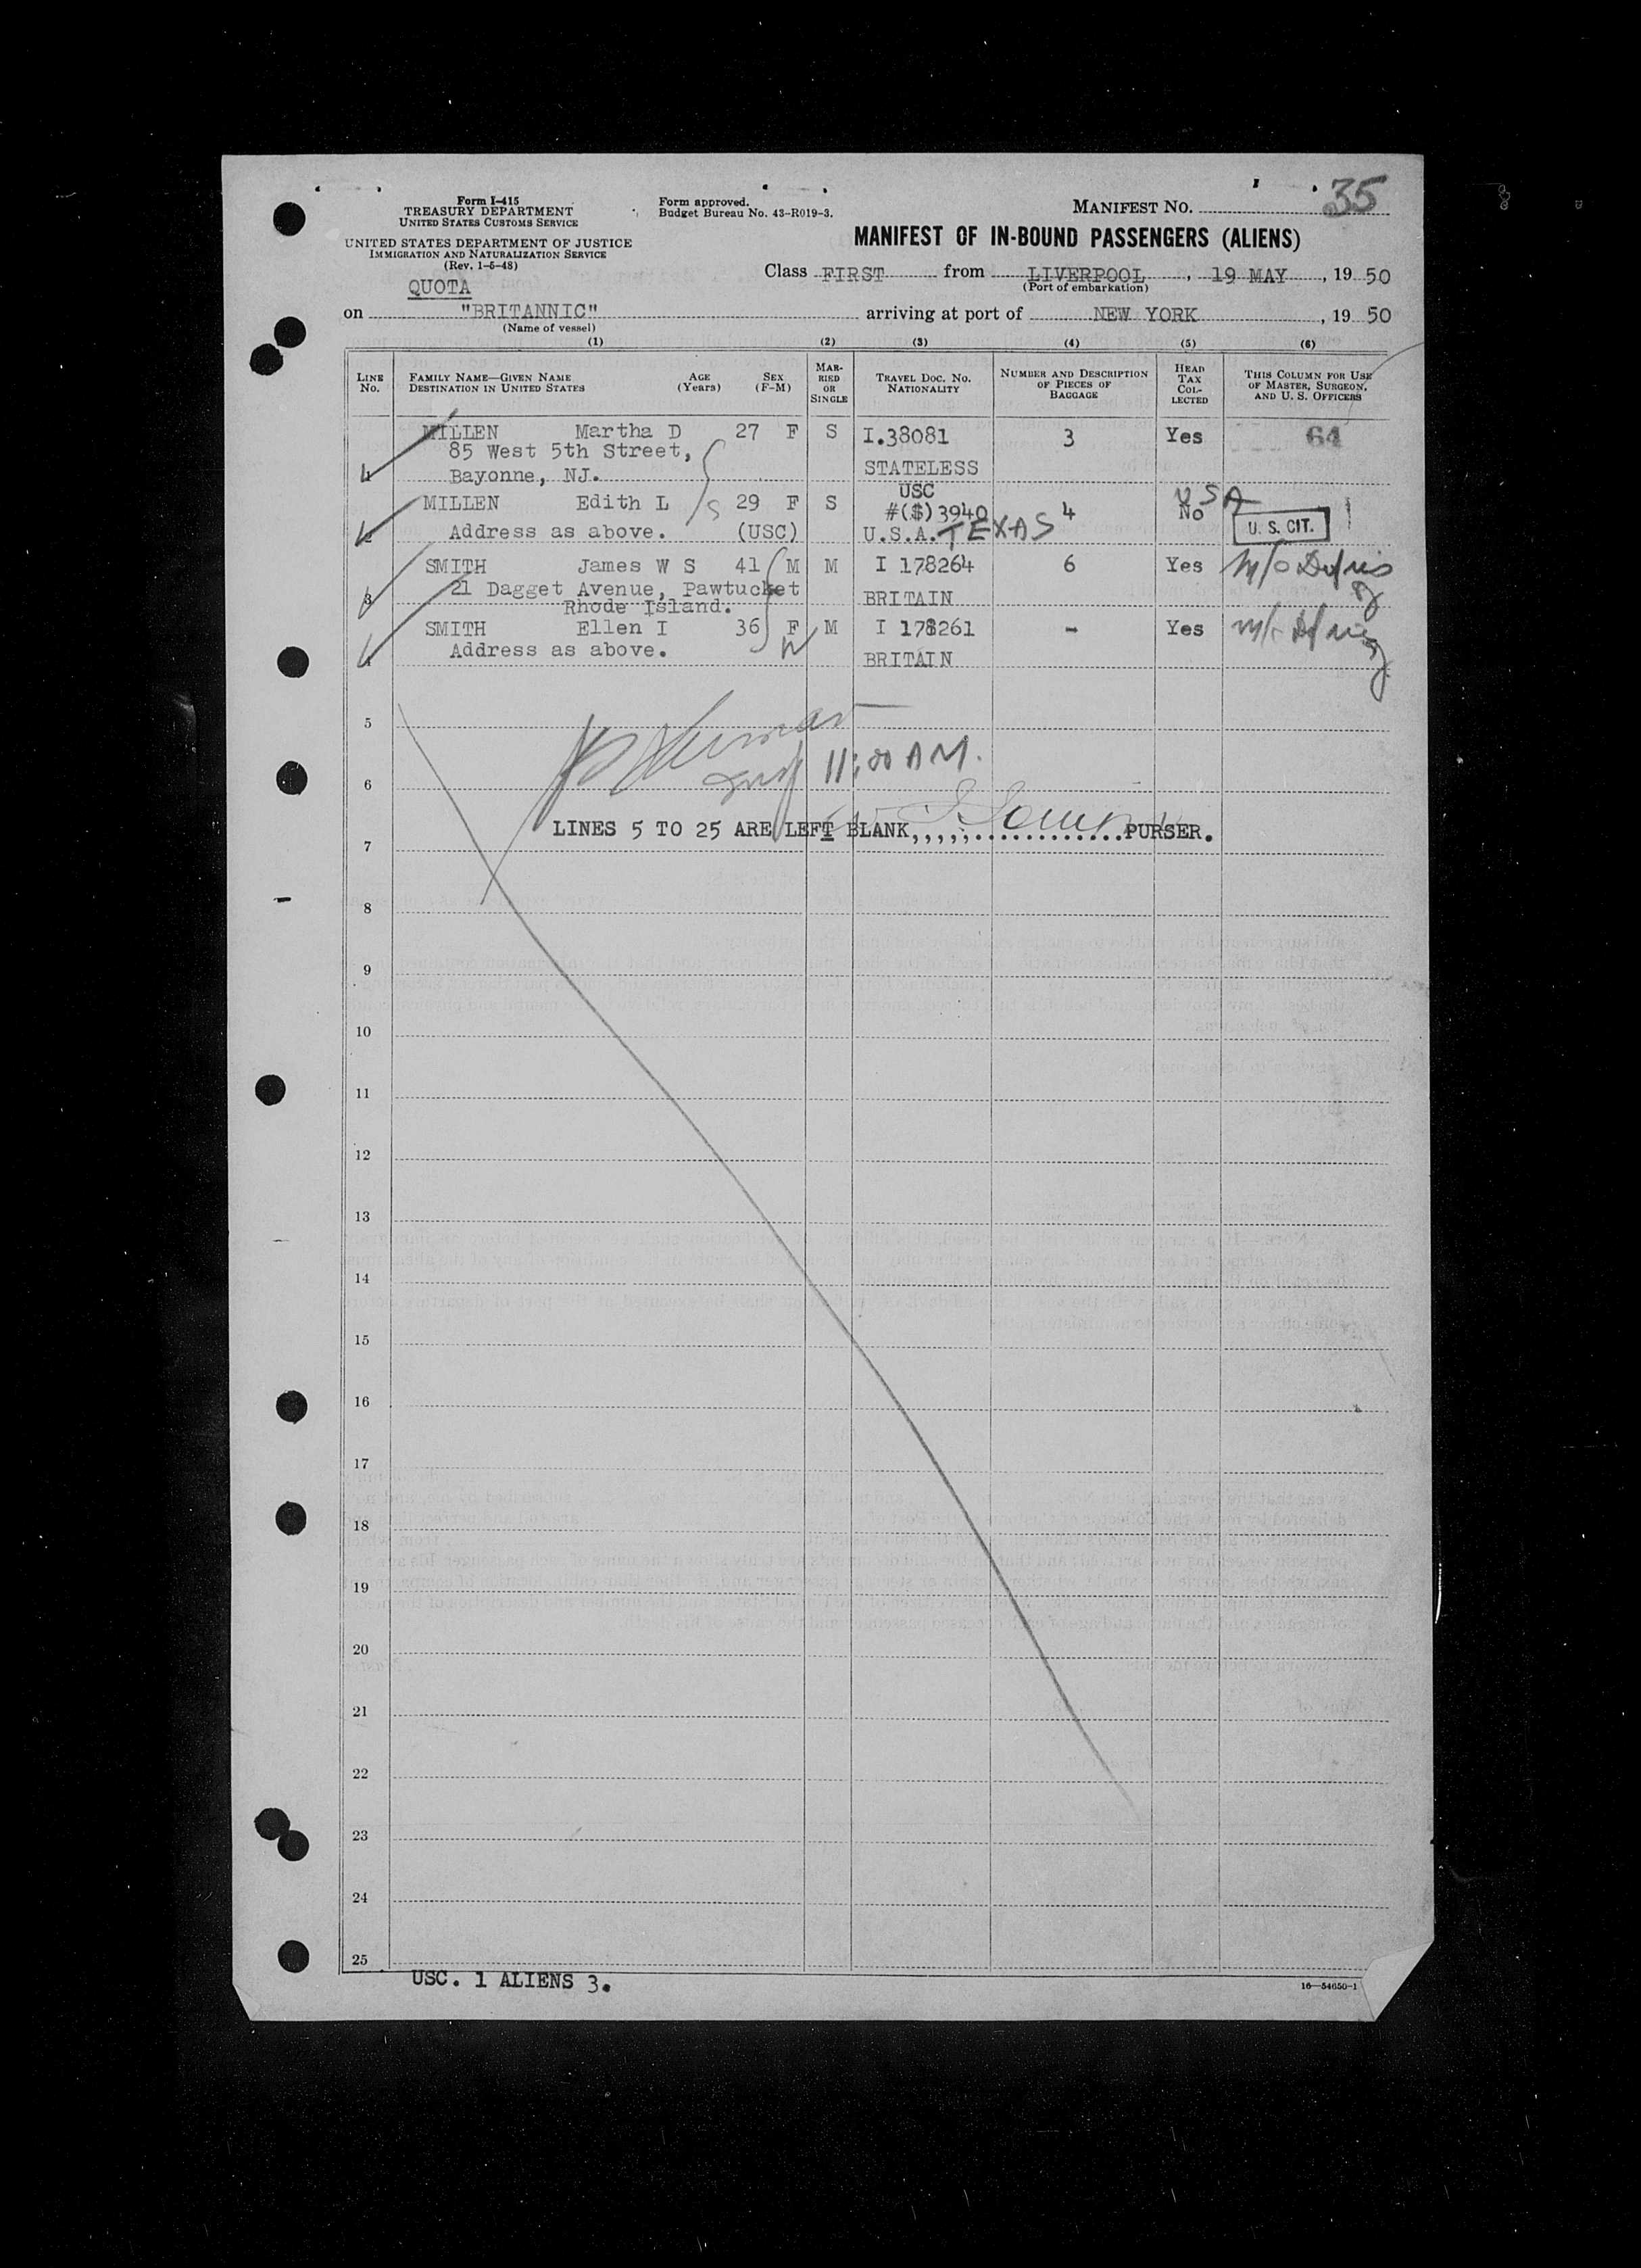 Form I-415
TREASURY DEPARTMENT
UNITED STATES CUSTOMS SERVICE
UNITED STATES DEPARTMENT OF JUSTICE
IMMIGRATION AND NATURALIZATION SERVICE
(Rev. 1-5-48)
Form approved.
Budget Bureau No. 43-R019-3.
MANIFEST NO. 35
MANIFEST OF IN-BOUND PASSENGERS (ALIENS)
QUOTA
Class FIRST from LIVERPOOL, 19 MAY, 19 50
(Port of embarkation)
on "BRITANNIC" arriving at port of NEW YORK, 19 50
(Name of vessel)
(1) (2) (3) (4) (5) (6)
LINE NO. FAMILY NAME—GIVEN NAME DESTINATION IN UNITED STATES AGE (Years) SEX (F-M) MARRIED OR SINGLE TRAVEL DOC. NO. NATIONALITY NUMBER AND DESCRIPTION OF PIECES OF BAGGAGE HEAD TAX COLLECTED THIS COLUMN FOR USE OF MASTER, SURGEON, AND U. S. OFFICERS
MILLEN Martha D 27 F S I.38081 3 Yes 64
85 West 5th Street,
1 Bayonne, NJ. STATELESS
MILLEN Edith L 29 F S USC #($)3940 4 No USA
2 Address as above. (USC) U.S.A. TEXAS U. S. CIT.
SMITH James W S 41 M M I 178264 6 Yes
3 21 Dagget Avenue, Pawtucket BRITAIN
Rhode Island.
SMITH Ellen I 36 F M I 178261 - Yes
4 Address as above. BRITAIN
5
11:00 AM.
6
LINES 5 TO 25 ARE LEFT BLANK,,,,,...............PURSER.
7
8
9
10
11
12
13
14
15
16
17
18
19
20
21
22
23
24
25
USC. 1 ALIENS 3.
16—54650-1